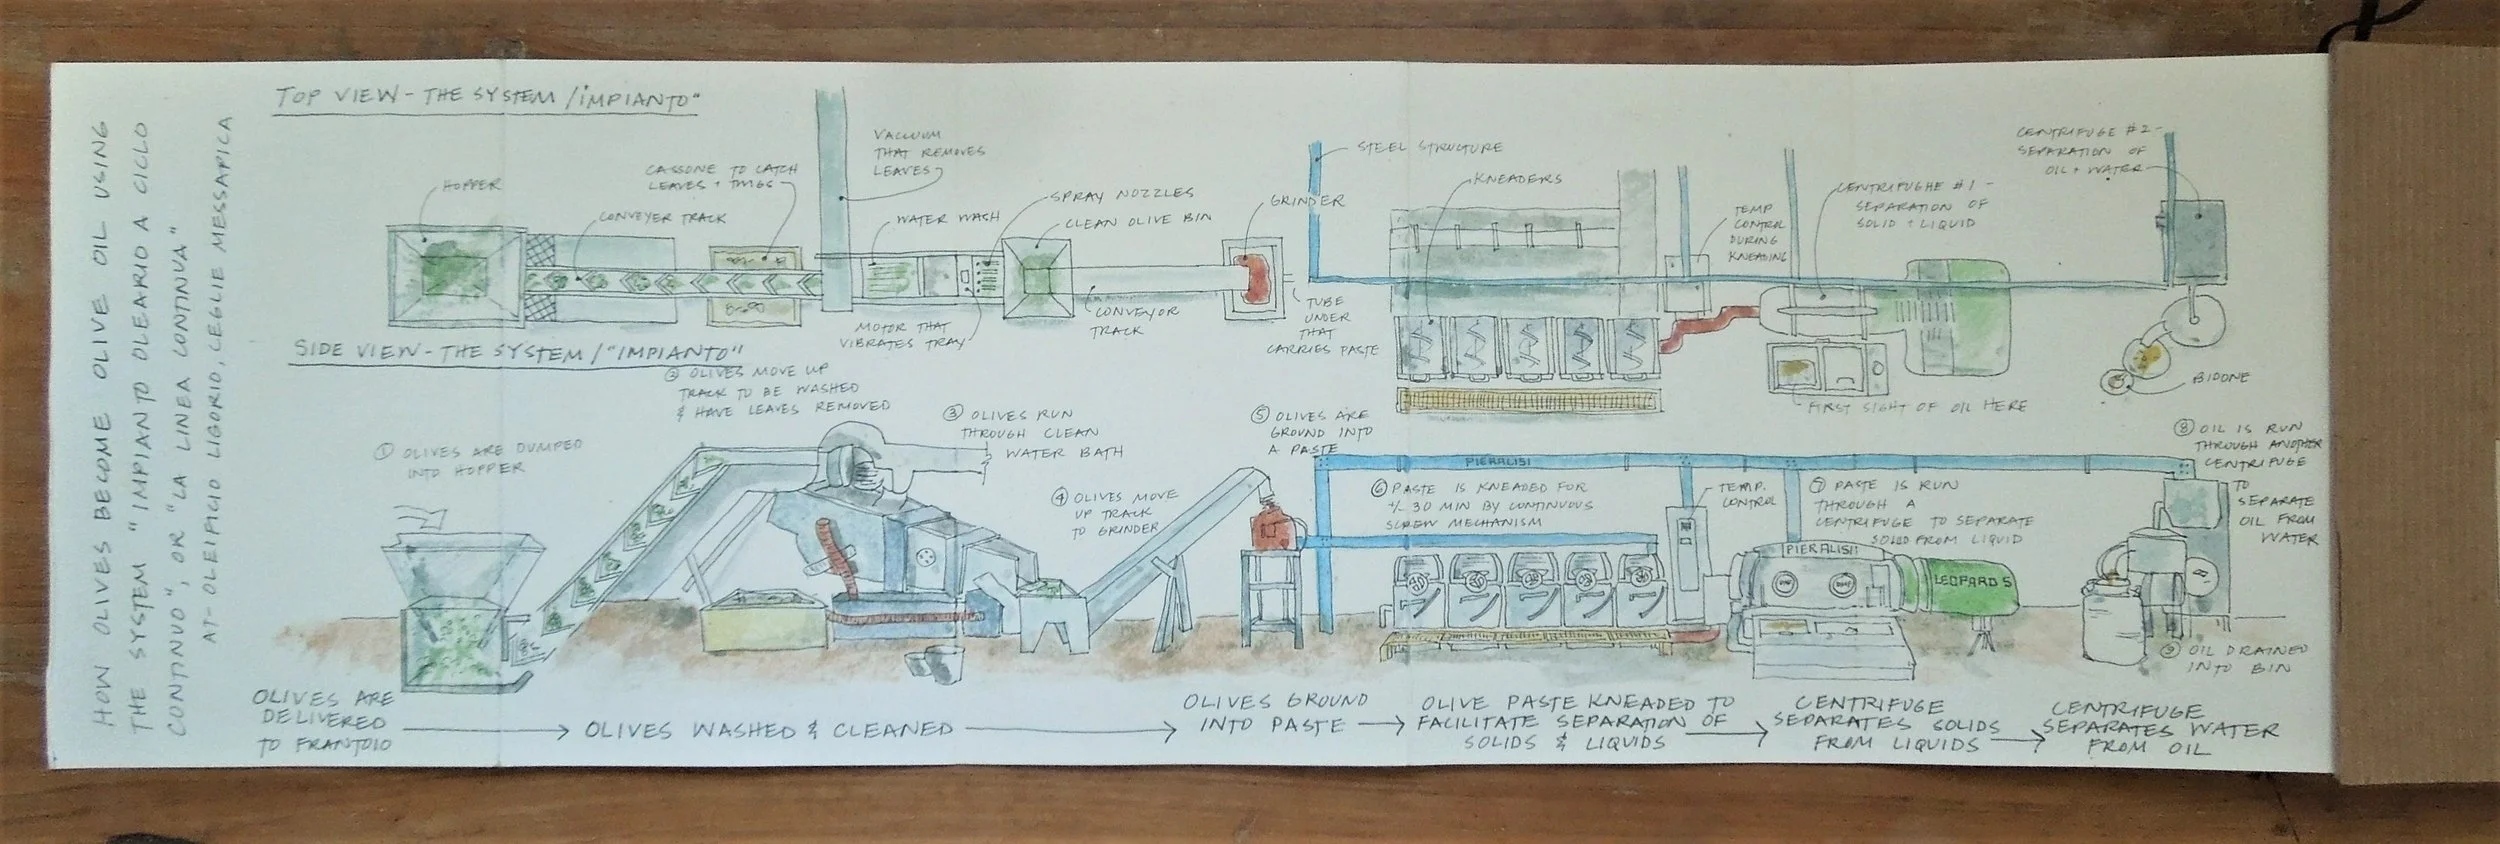 HOW OLIVES BECOME OLIVE OIL USING
THE SYSTEM "IMPIANTO OLEARIO A CICLO
CONTINUO", OR "LA LINEA CONTINUA"
AT- OLEIFICIO LIGORIO, CEGLIE MESSAPICA
TOP VIEW - THE SYSTEM / IMPIANTO"
HOPPER
CONVEYER TRACK
CASSONE TO CATCH
LEAVES + TWIGS
VACUUM
THAT REMOVES
LEAVES
WATER WASH
MOTOR THAT
VIBRATES TRAY
SPRAY NOZZLES
CLEAN OLIVE BIN
CONVEYOR
TRACK
GRINDER
TUBE
UNDER
THAT
CARRIES PASTE
STEEL STRUCTURE
KNEADERS
TEMP
CONTROL
DURING
KNEADING
CENTRIFUGHE #1 -
SEPARATION OF
SOLID + LIQUID
FIRST SIGHT OF OIL HERE
CENTRIFUGE #2 -
SEPARATION OF
OIL + WATER
BIDONE
SIDE VIEW - THE SYSTEM / "IMPIANTO"
① OLIVES ARE DUMPED
INTO HOPPER
② OLIVES MOVE UP
TRACK TO BE WASHED
& HAVE LEAVES REMOVED
③ OLIVES RUN
THROUGH CLEAN
WATER BATH
④ OLIVES MOVE
UP TRACK
TO GRINDER
⑤ OLIVES ARE
GROUND INTO
A PASTE
PIERALISI
⑥ PASTE IS KNEADED FOR
+/- 30 MIN BY CONTINUOUS
SCREW MECHANISM
TEMP.
CONTROL
⑦ PASTE IS RUN
THROUGH A
CENTRIFUGE TO SEPARATE
SOLID FROM LIQUID
PIERALISI
LEOPARD 5
⑧ OIL IS RUN
THROUGH ANOTHER
CENTRIFUGE
TO
SEPARATE
OIL FROM
WATER
⑨ OIL DRAINED
INTO BIN
OLIVES ARE
DELIVERED
TO FRANTOIO
OLIVES WASHED & CLEANED
OLIVES GROUND
INTO PASTE
OLIVE PASTE KNEADED TO
FACILITATE SEPARATION OF
SOLIDS & LIQUIDS
CENTRIFUGE
SEPARATES SOLIDS
FROM LIQUIDS
CENTRIFUGE
SEPARATES WATER
FROM OIL